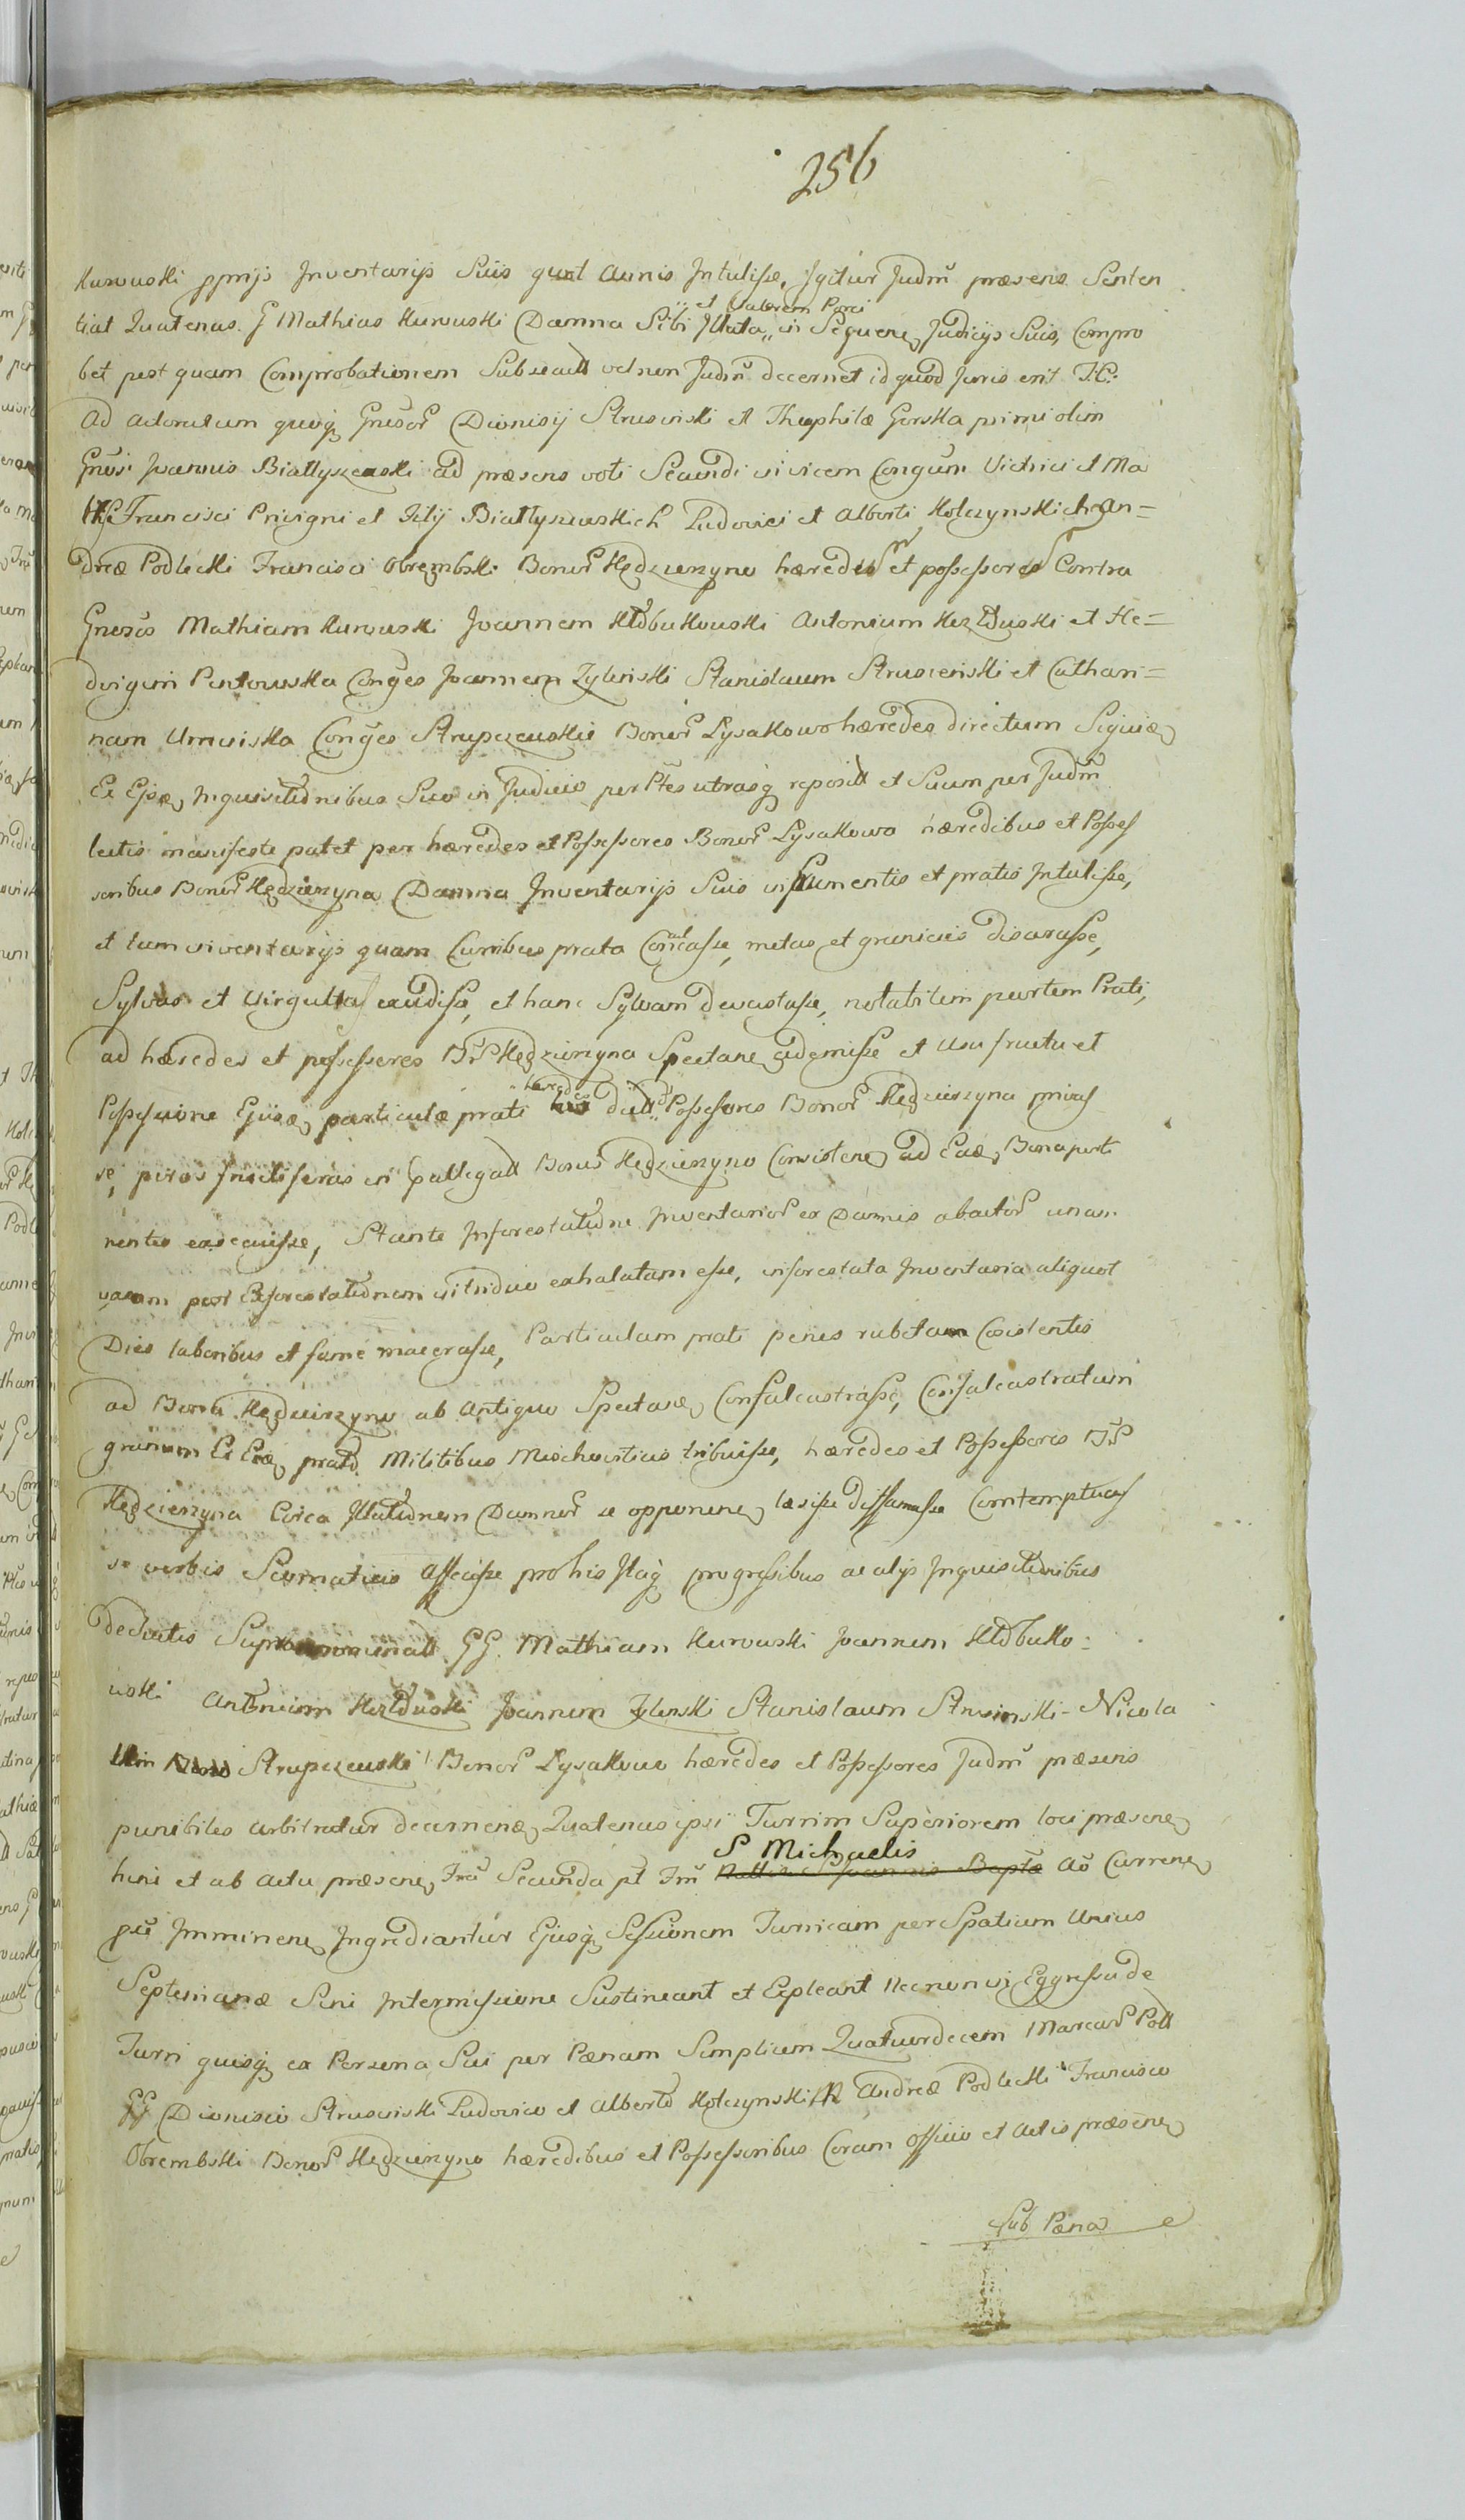 256
Kurowski pprijs Inventarijs Suis gunt Annis Intulisse, Igitur Judm præsens Senten
tiat Quatenus G Mathias Kurowski Damna Sibi Illata et Valorem Porci in Sequen Judicijs Suis, Compro
bet post quam Comprobationem Subsecutt vel non Judm decernet id quod Juris erit
Ad Actoratum quoq Gnesor Dionisij Strusinski et Theophilæ Gorska primi olim
Gnosi Joannis Biallyszewski ad præsens voti Secundi in vicem Congum Victrici et Ma
Francisci Privigni et Filij Biallyszewskich Ludovici et Alberti Kolczynskich An=
dreæ Podlecki Francisci Obrembski Bonor Kędzierzyno hæredes et possessores Contra
Gnosos Mathiam Kurowski Joannem Kłobukowski Antonium et He=
dvigem Pentowska Conges Joannem Zylinski Stanislaum Strusienski et Cathari=
nam Uminska Conges Strupczewskie Bonor Lysakowo hæredes directum Signio
Ex Ejsæ Inquisitionibus Suo in Judicio per Ptes utrasq reposit et Suum per Judm
lectis manifeste patet per hæredes et Possessores Bonor Lysakowo hæredibus et Posses
soribus Bonor Kędzierzyna Damna Inventarijs Suis in frumentis et pratis Intulisse,
et tum inventarijs quam Curribus prata Conculcasse, metas et granicies disarasse,
Sylvas et Virgulta exudisse, et hanc Sylvam devastasse, notabilem partem Prati,
ad hæredes et possessores Br Kędzierzyna Spectane ademisse et Usu fructu et
Possessione Ejusæ particulæ prati hæredes dictt Possessores Bonor Kędzierzyna privas
se, piros fructiferas in Spallegatt Bonis Kędzierzyno Consisten ad Eadæ Bona perti
nentes exsecuisse, Stante Inforestatione Inventarior ex Damnis abactor unam
vaccam post Exforestationem in triduo exhalatam esse, inforestata Inventaria aliquot
Dies laboribus et fame macerasse, Particulam prati penes rubetam Existentis
ad Bona Kędzierzyno ab Antiquo Spectane Confalcastrasse, Confalcastratum
gramen Ex Eoæ prato Militibus tribuisse, hæredes et Possessores Br
Kędzierzyna Circa Illationem Damnor se opponene læsisse diffamasse Comtemptuos
se verbis Scomaticis Affecisse pro his Itaq progressibus ac alijs Inquisitionibus
deductis Supranominatt GG. Mathiam Kurowski Joannem Kłobuko=
wski Antonium Joannem Zylenski Stanislaum Strusinski Nicola
um Strupczewski Bonor Lysakowo hæredes et Possessores Judm præsens
punibiles arbitratur decernene Quatenus ipsi Turrim Superiorem loci præsene
hine et ab Actu præsene Fria Secunda pt Fm S Michaelis Ao Currene
pti Imminene Ingrediantur Ejusq Sessionem Turricam per Spatium Unius
Septemanæ Sine Intermissione Sustineant et Expleant Necnon in Eggressu de
Turri quisq ex Persona Sui per Pænam Simplium Quatuordecem Marcar Poll
GG Dionisio Strusinski Ludovico et Alberto Kolczynski Andreæ Podlecki Francisco
Obrembski Bonor Kędzierzyno hæredibus et Possessoribus Coram Officio et Actis præsene
Sub Pæna